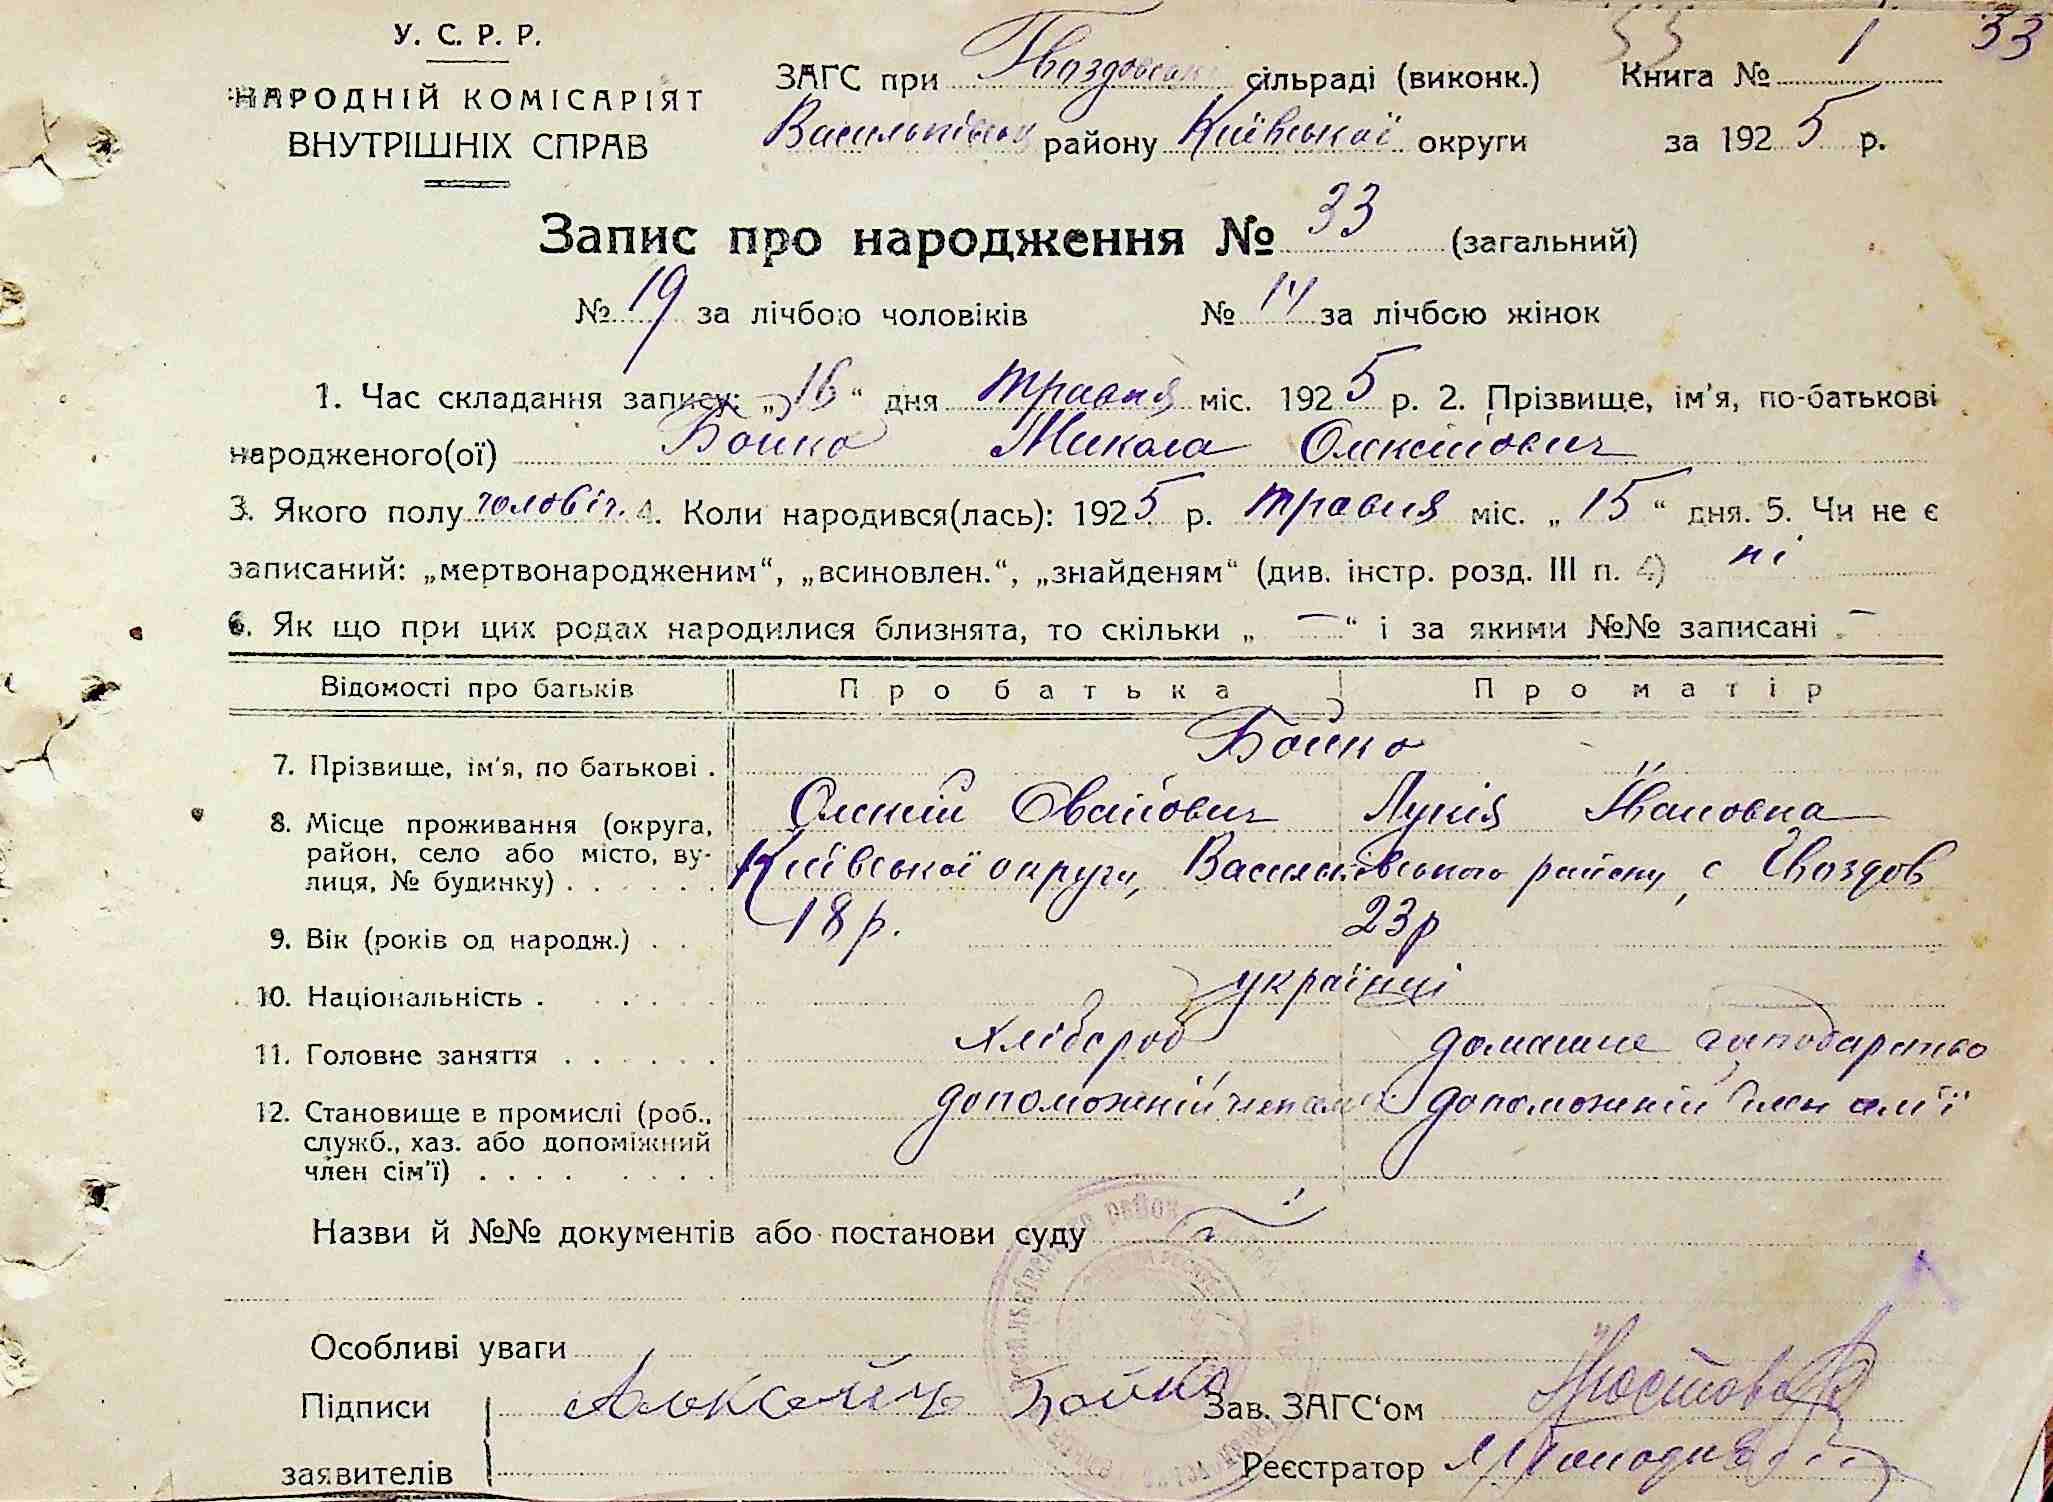 33 33
У. С. Р. Р.
НАРОДНІЙ КОМІСАРІЯТ
ВНУТРІШНІХ СПРАВ
ЗАГС при Гвоздовські сільраді (виконк.) Книга № 1
Васильківськ району Київської округи за 1925 р.
Запис про народження № 33 (загальний)
№ 19 за лічбою чоловіків № 14 за лічбою жінок
1. Час складання запису: „16“ дня травня міс. 1925 р. 2. Прізвище, ім'я, по-батькові
народженого(ої) Бойко Микола Олексійович
3. Якого полу чоловіч. 4. Коли народився(лась): 1925 р. травня міс. „15“ дня. 5. Чи не є
записаний: „мертвонародженим“, „всиновлен.“, „знайденям“ (див. інстр. розд. III п. 4) ні
6. Як що при цих родах народилися близнята, то скільки „—“ і за якими №№ записані —
Відомості про батьків Про батька Про матір
7. Прізвище, ім'я, по батькові . Бойко
Олексій Іванович Лукія Івановна
8. Місце проживання (округа,
район, село або місто, ву-
лиця, № будинку) . . . . . . Київської округи, Васильківського району, с Гвоздов
9. Вік (років од народж.) . . 18 р. 23 р
10. Національність . . . . . українці
11. Головне заняття . . . . . . хлібороб домашнє господарство
12. Становище в промислі (роб.,
служб., хаз. або допоміжний
член сім'ї) . . . . . . . . допоможній член сем'ї допоможній член сем'ї
Назви й №№ документів або постанови суду
Особливі уваги
Підписи Алєксейць Бойко Зав. ЗАГС‘ом
заявителів Реєстратор